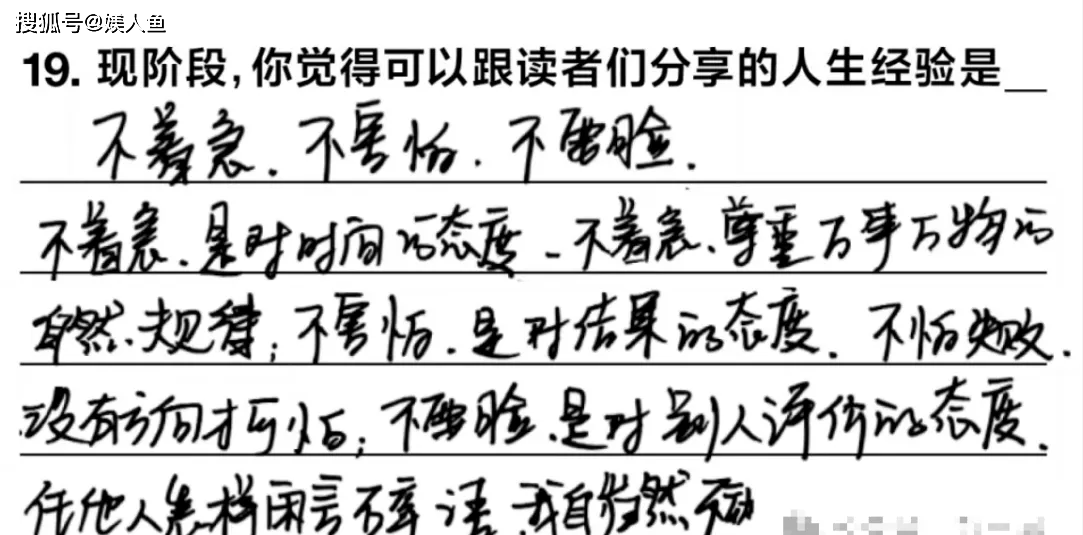 搜狐号@媄人鱼
19. 现阶段,你觉得可以跟读者们分享的人生经验是__
不着急.不害怕.不要脸.
不着急.是对时间的态度-不着急.尊重万事万物的
自然规律;不害怕.是对结果的态度.不怕失败.
没有方向才可怕;不要脸.是对别人评价的态度.
任他人怎样闲言碎语.我自岿然不动